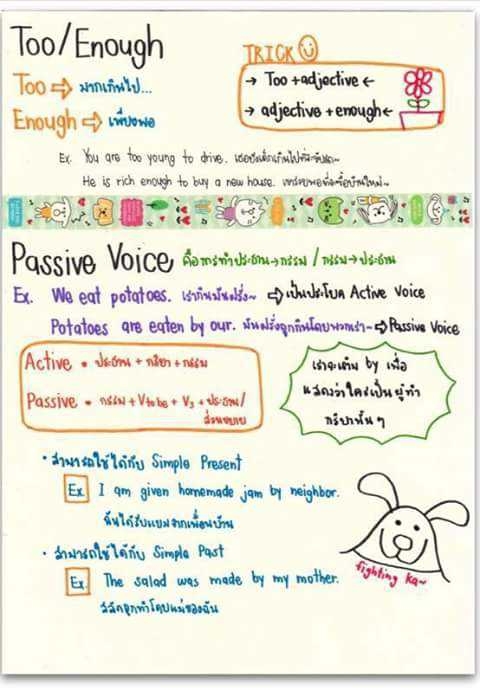 Too/Enough
Too ⇨ มากเกินไป...
Enough ⇨ เพียงพอ
TRICK
→ Too +adjective ←
→ adjective +enough ←
Ex. You are too young to drive. เธอยังเด็กเกินไปที่จะขับรถ~
He is rich enough to buy a new house. เขารวยพอที่จะซื้อบ้านใหม่~
Passive Voice คือการทำประธาน→กรรม / กรรม→ประธาน
Ex. We eat potatoes. เรากินมันฝรั่ง~ ⇨เป็นประโยค Active Voice
Potatoes are eaten by our. มันฝรั่งถูกกินโดยพวกเรา~⇨Passive Voice
Active = ประธาน + กริยา + กรรม
Passive = กรรม + V to be + V3 + ประธาน/
ส่วนขยาย
เราจะเติม by เพื่อ
แสดงว่าใครเป็นผู้ทำ
กริยานั้นๆ
• สามารถใช้ได้กับ Simple Present
Ex. I am given homemade jam by neighbor.
ฉันได้รับแยมจากเพื่อนบ้าน
• สามารถใช้ได้กับ Simple Past
Ex. The salad was made by my mother.
สลัดถูกทำโดยแม่ของฉัน
fighting ka~